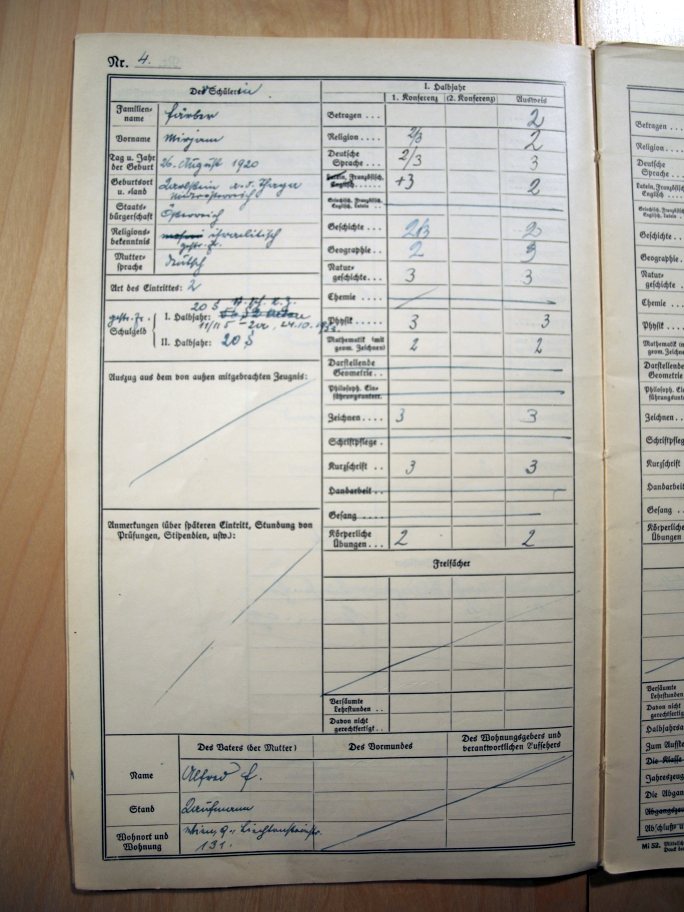 Nr. 4.
Des Schülers in
Familien-
name
Färber
Vorname
Mirjam
Tag u. Jahr
der Geburt
26. August 1920
Geburtsort
u. -land
Karlstein a. d. Thaya
Niederösterreich
Staats-
bürgerschaft
Österreich
Religions-
bekenntnis
israelitisch
Mutter-
sprache
deutsch
Art des Eintrittes: 2
Schulgeld
I. Halbjahr: 20 S
24.10.
II. Halbjahr: 20 S
Auszug aus dem von außen mitgebrachten Zeugnis:
Anmerkungen (über späteren Eintritt, Stundung von
Prüfungen, Stipendien, usw.):
I. Halbjahr
1. Konferenz (2. Konferenz) Ausweis
Betragen . . . 2
Religion . . . . 2/3 2
Deutsche
Sprache . . . 2/3 3
Latein, Französisch,
Englisch . . . . . +3 2
Griechisch, Französisch,
Englisch, Latein . .
Geschichte . . . 2/3 2
Geographie . . . 2 3
Natur-
geschichte . . . 3 3
Chemie . . . .
Physik . . . . 3 3
Mathematik (mit
geom. Zeichnen) 2 2
Darstellende
Geometrie . .
Philosoph. Ein-
führungsunterr.
Zeichnen . . . . 3 3
Schriftpflege .
Kurzschrift . . 3 3
Handarbeit . .
Gesang . . . .
Körperliche
Übungen . . . 2 2
Freifächer
Versäumte
Lehrstunden . .
Davon nicht
gerechtfertigt . .
Des Vaters (der Mutter) Des Vormundes Des Wohnungsgebers und
verantwortlichen Aufsehers
Name Alfred F.
Stand Kaufmann
Wohnort und
Wohnung
Wien, 9., Liechtensteinstr.
131.
Betragen . .
Religion . . .
Deutsche
Sprache . .
Latein, Französisch,
Englisch . . .
Griechisch, Französisch,
Englisch, Latein . .
Geschichte . .
Geographie . .
Natur-
geschichte . .
Chemie . . .
Physik . . .
Mathematik (mit
geom. Zeichnen)
Darstellende
Geometrie . .
Philosoph. Ein-
führungsunterr.
Zeichnen . . .
Schriftpflege
Kurzschrift
Handarbeit .
Gesang . . .
Körperliche
Übungen . . .
Versäumte
Lehrstunden .
Davon nicht
gerechtfertigt .
Die Klasse
Mi 52.